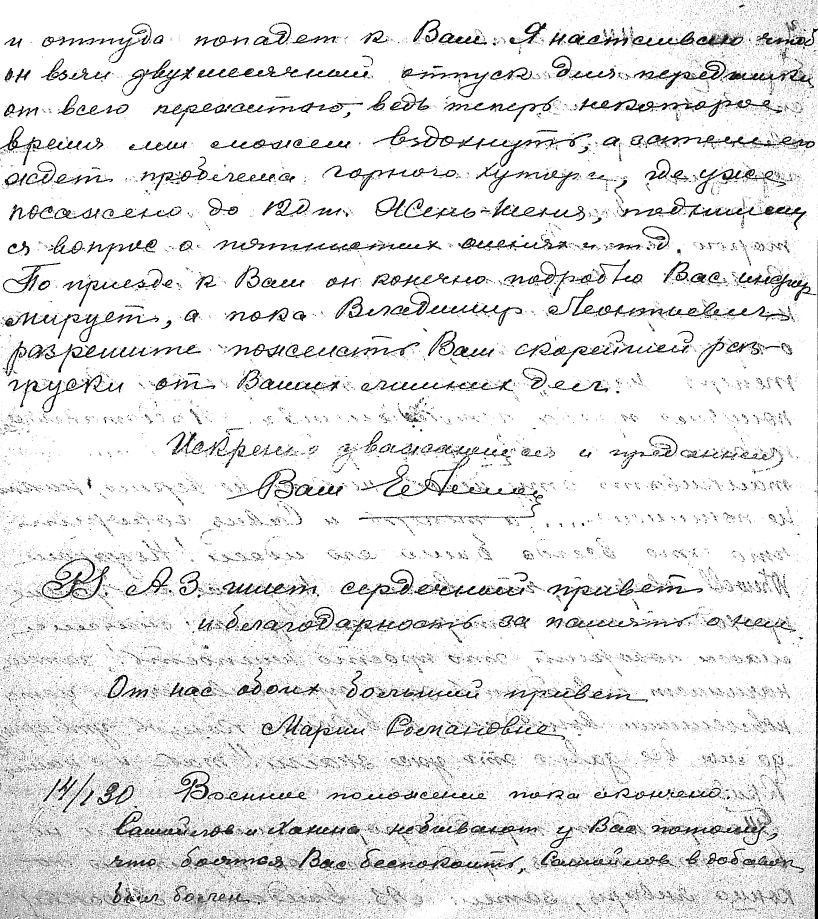 и оттуда попадет к Вам. Я настаиваю чтоб
он взял двухмесячный отпуск для передышки
от всего пережитого, ведь теперь некоторое
время мы сможем вздохнуть, а затем его
ждет проблема горного хутора, где уже
посажено до 12 дт. Жень-шеня, поднимает
ся вопрос о пятнистых оленях и т.д.
По приезде к Вам он конечно подробно Вас инфор
мирует, а пока Владимир Леонтьевич
разрешите пожелать Вам скорейшей раз-
грузки от Ваших лишних дел.
Искренно уважающий и преданный
Ваш
PS. А.З. шлет сердечный привет
и благодарность за память о нем.
От нас обоих большой привет
Марии Романовне
14/I 30. Военное положение пока окончено.
Самойлов и Ханина не бывают у Вас потому,
что боятся Вас беспокоить, Самойлов в добавок
был болен